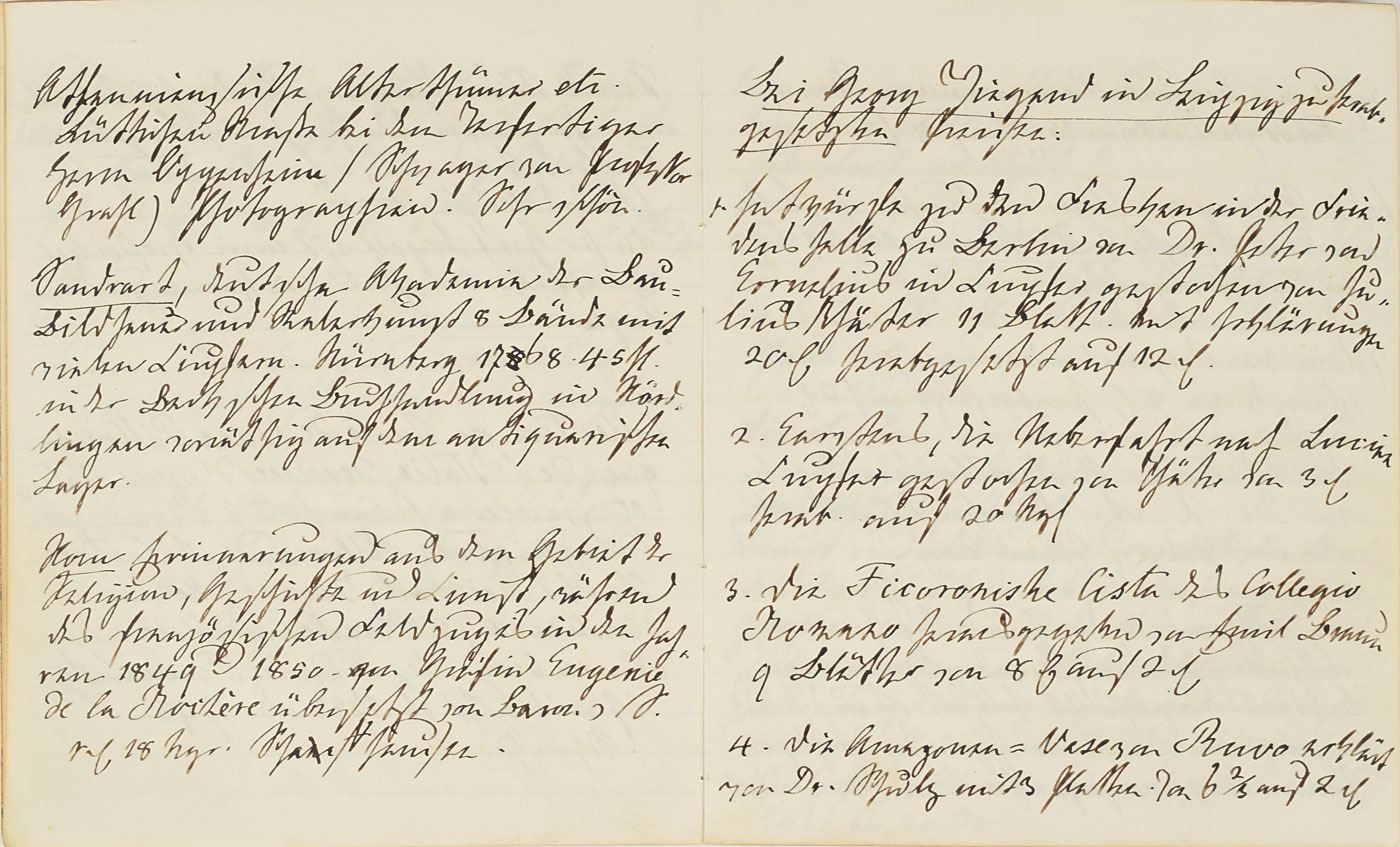 Atheniensische Alterthümer etc.
Lüttichau Straße bei dem Verfertiger
Herrn Oppenheim / Schwager von Professor
Grahl) Photographien. Sehr schön.
Sandrart, deutsche Akademie der Bau-
Bildhauer und Malerkunst 8 Bände mit
vielen Kupfern. Nürnberg 1768. 45 fl.
in der Beckschen Buchhandlung in Nörd-
lingen vorräthig auf dem antiquarischen
Lager.
Rom Erinnerungen aus dem Gebiet der
Religion, Geschichte und Kunst, während
des französischen Feldzuges in den Jah-
ren 1849 1850. von Gräfin Eugenie
de la Rocière übersetzt von Baron v S.
18 Ngr. Schaffhausen.
Bei Georg Wiegand in Leipzig zu herab-
gesetzten Preisen:
1. Entwürfe zu den Fresken in der Frie-
denshalle zu Berlin von Dr. Peter von
Cornelius in Kupfer gestochen von Ju-
lius Thäter 11 Blatt. mit Erklärungen
20 herabgesetzt auf 12
2. Carstens, die Ueberfahrt nach Lucian
Kupfer gestochen von Thäter von 3
herab. auf 20 Ngr
3. die Ficoronishe Cista des Collegio
Romano herausgegeben von Emil Braun
9 Blätter von 8 auf 2
4. die Amazonen = Vase von Ruvo erklärt
von Dr. Schulz mit 3 Platten. von 6 2/3 auf 2